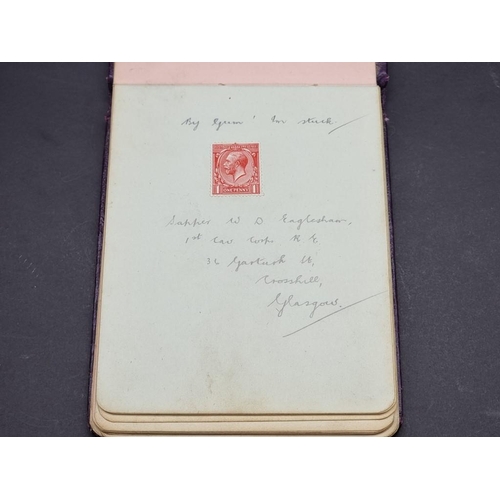 By Gum! I'm stuck
1 ONE PENNY 1
Sapper W D Eagleshaw,
1st Cav Corps R E
36 Garturk St,
Crosshill,
Glasgow.